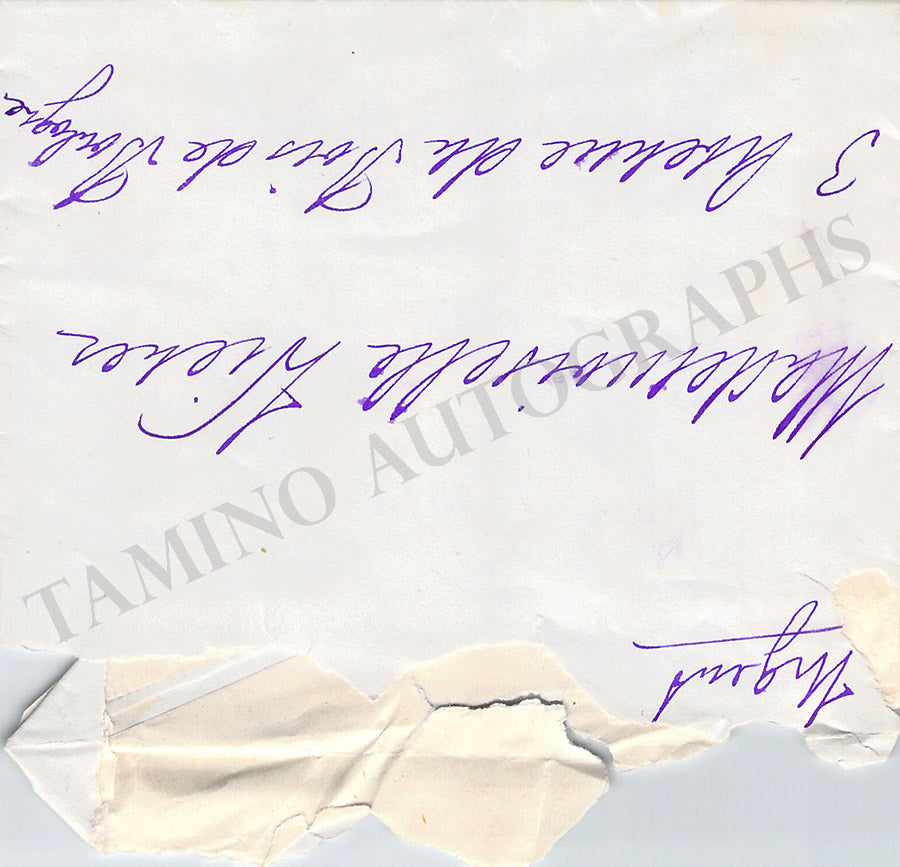 Urgent
Mademoiselle
3 Avenue du Bois de Boulogne
TAMINO AUTOGRAPHS